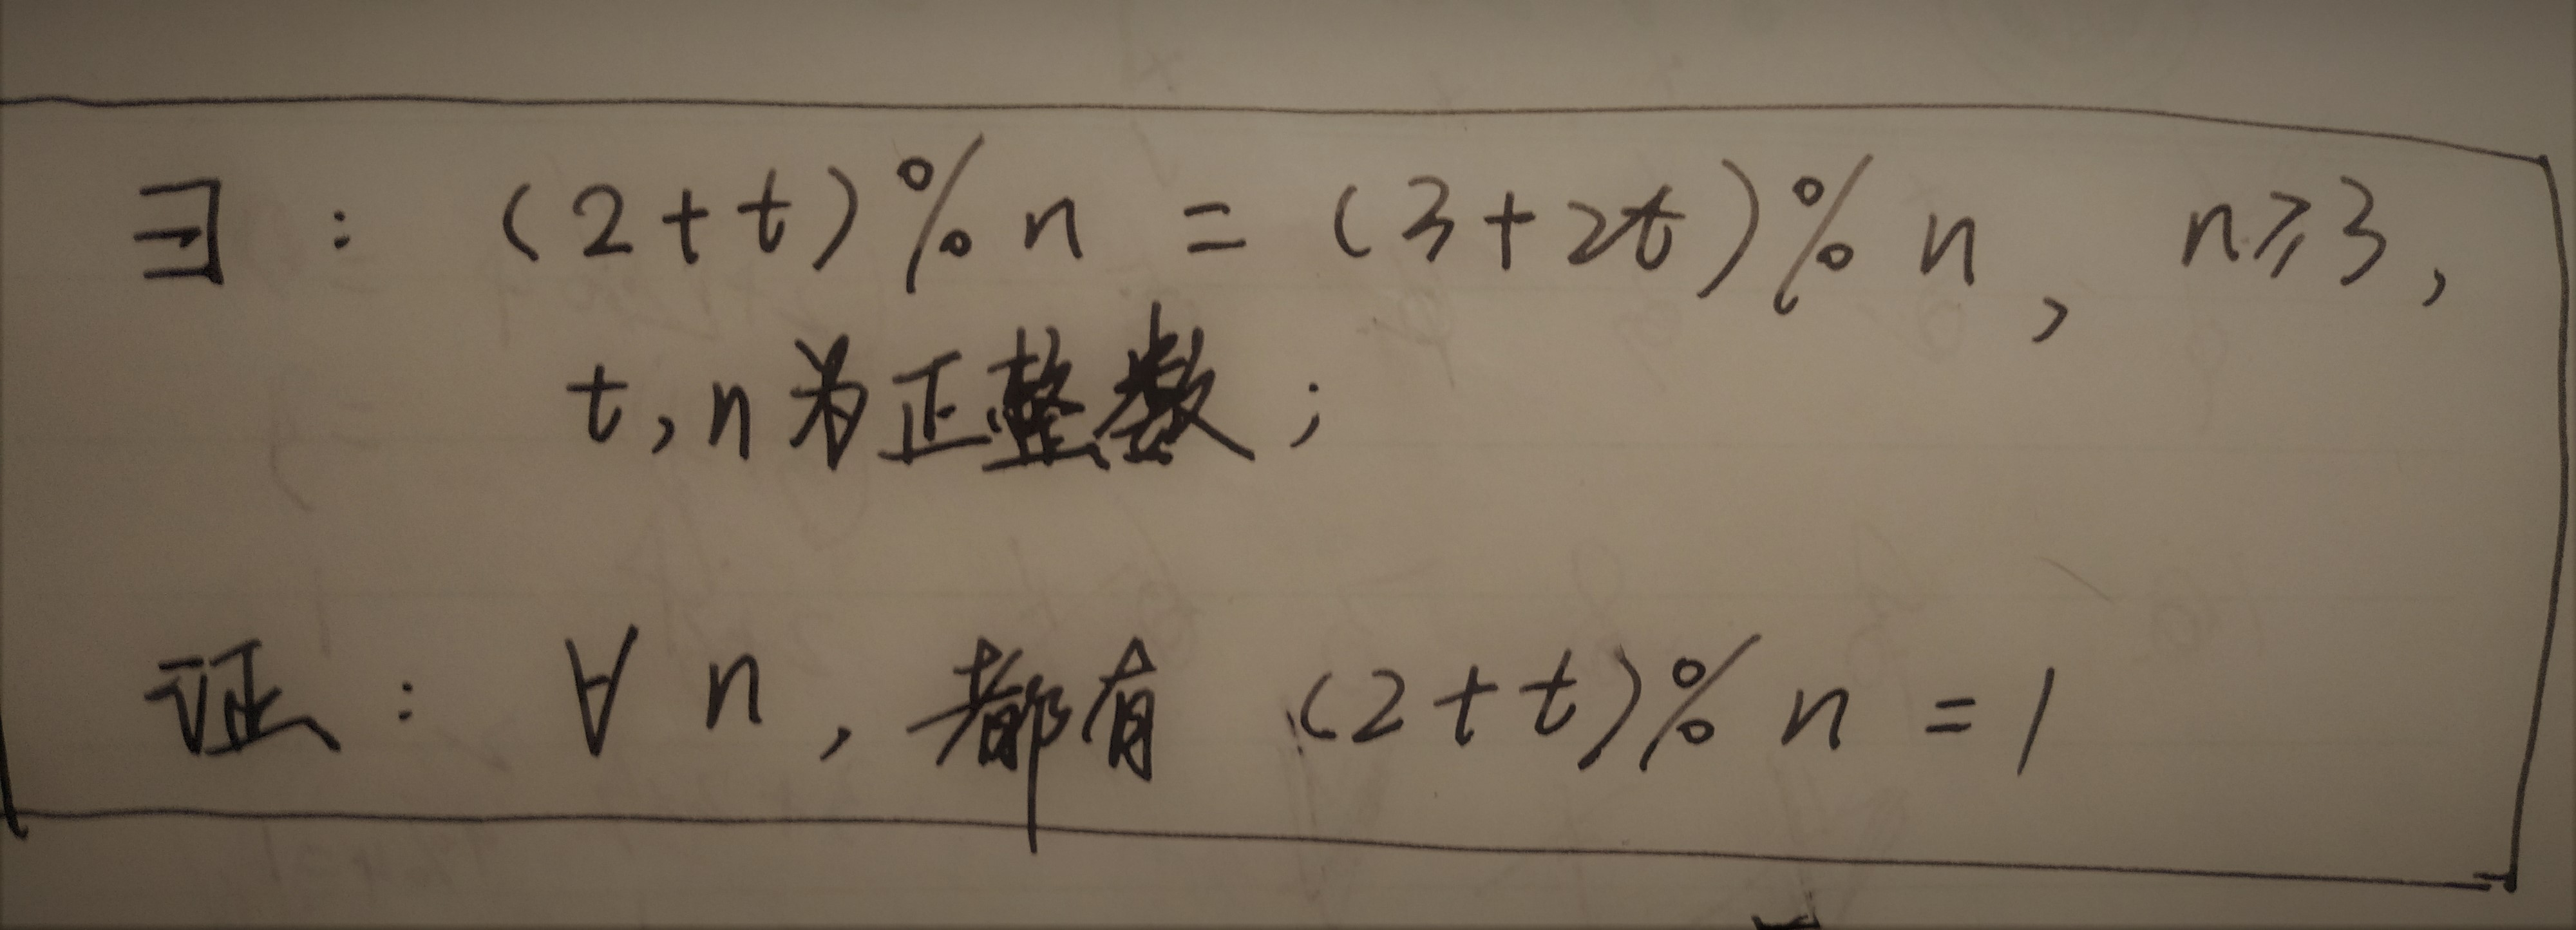 ∃ : (2+t)%n = (3+2t)%n, n≥3,
t,n为正整数;
证: ∀ n, 都有 (2+t)%n=1